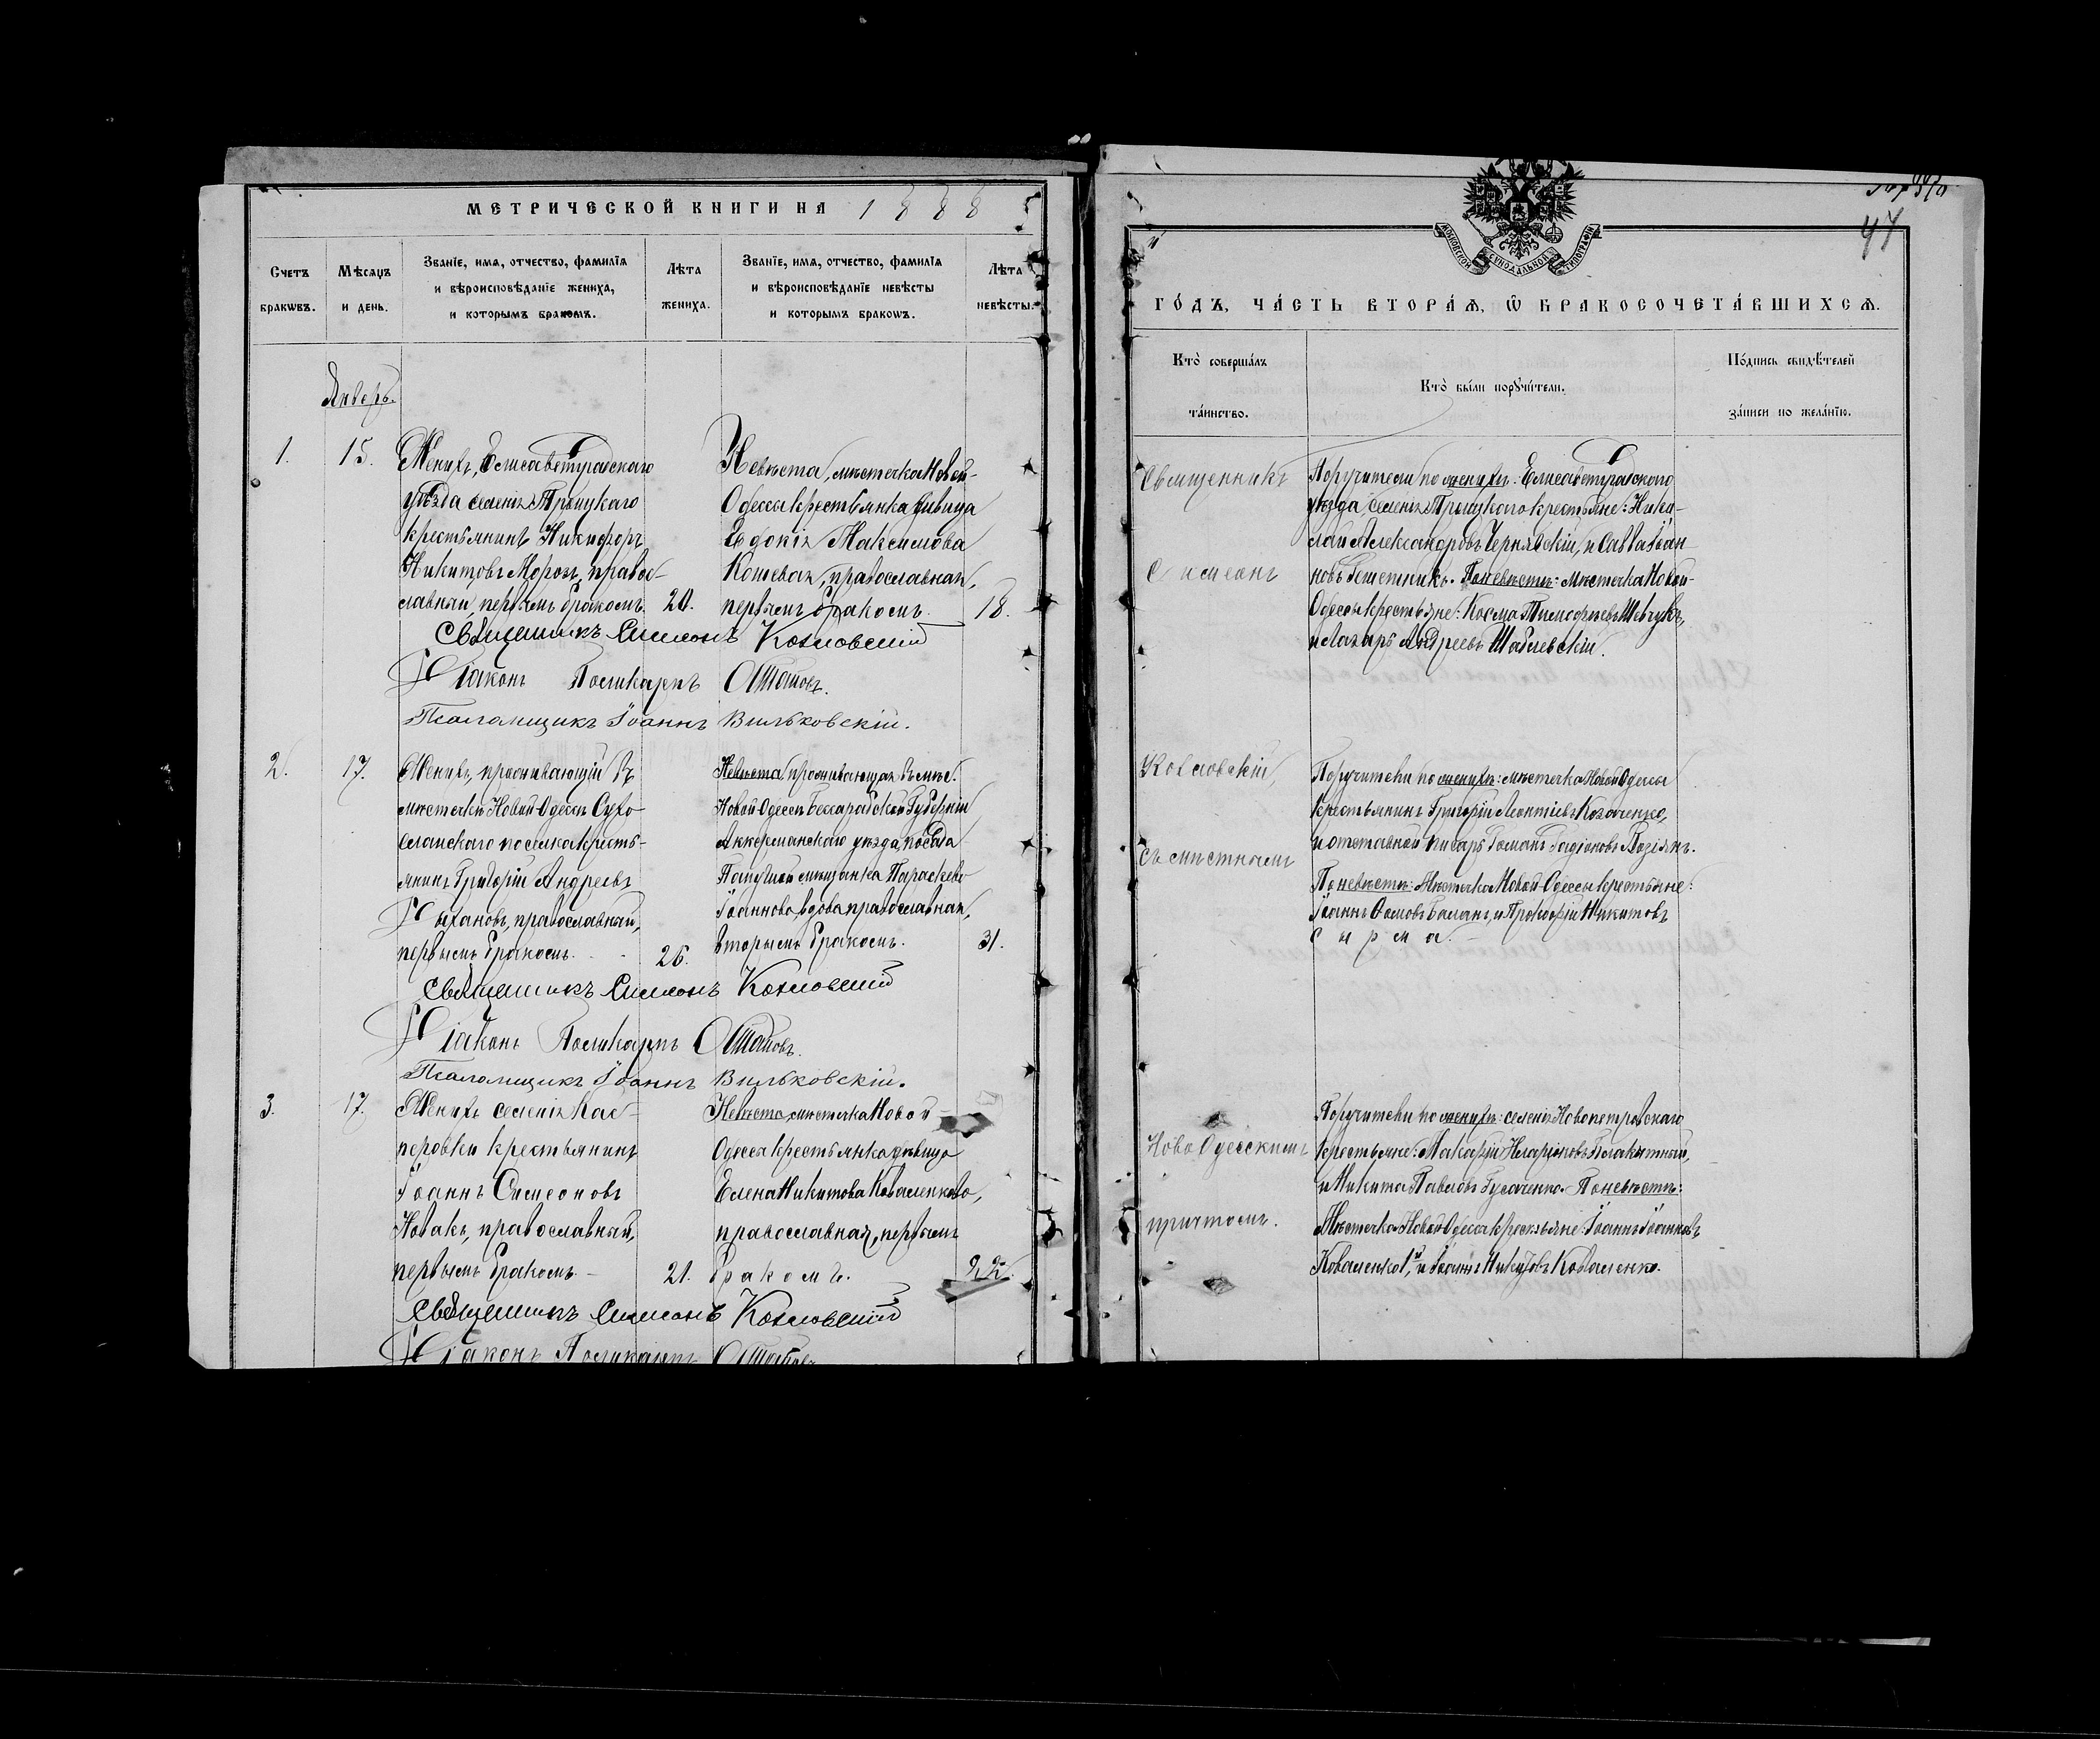 МЕТРИЧЕСКОЙ КНИГИ НА 1888
Счетъ браковъ.
Мѣсяцъ и день.
Званіе, имя, отчество, фамилія
и вѣроисповѣданіе жениха,
и которымъ бракомъ.
Лѣта жениха.
Званіе, имя, отчество, фамилія
и вѣроисповѣданіе невѣсты
и которымъ бракомъ.
Лѣта невѣсты.
Январь.
1.
15.
Женихъ, Елисаветградскаго
уѣзда селенія Троицкаго
крестьянинъ Никифоръ
Никитовъ Морозъ, правос-
лавный, первымъ бракомъ.
20.
Невѣста, мѣстечка Новой-
Одессы крестьянка дѣвица
Евдокія Максимова
Кошевая, православная,
первымъ бракомъ.
18.
Священникъ Симеонъ Козловскій
Діаконъ Поликарпъ
Псаломщикъ Іоаннъ Вильковскій.
2.
17.
Женихъ, проживающій въ
мѣстечкѣ Новой-Одессѣ Сухо-
еланскаго поселка кресть-
янинъ Григорій Андреевъ
православный,
первымъ бракомъ.
26.
Невѣста проживающая въ мѣс.
Новой Одессѣ Бессарабской Губерніи
Аккерманскаго уѣзда, посада
мѣщанка Параскева
Іоаннова, вдова православная,
вторымъ бракомъ.
31.
Священникъ Симеонъ Козловскій
Діаконъ Поликарпъ
Псаломщикъ Іоаннъ Вильковскій.
3.
17.
Женихъ селенія Кас-
перовки крестьянинъ
Іоаннъ Симеоновъ
Новакъ, православный,
первымъ бракомъ.
21.
Невѣста, мѣстечка Новой
Одессы крестьянка дѣвица
Елена Никитова Коваленкова,
православная, первымъ
бракомъ.
22.
Священникъ Симеонъ Козловскій
Діаконъ Поликарпъ
47
МОСКОВСКОЙ СѴНОДАЛЬНОЙ ТИПОГРАФІИ
ГО́ДЪ, ЧА́СТЬ ВТОРА́Я, Ѽ БРАКОСОЧЕТА́ВШИХСЯ.
Кто̀ соверша́лъ
та́инство.
Кто̀ бы́ли порꙋчи́тели.
По́дпись свидѣ́телей
за́писи по жела́нїю.
Священникъ
Симеонъ
Козловскій,
съ мѣстнымъ
Ново Одесскимъ
причтомъ.
Поручители по женихѣ: Елисаветградского
уѣзда, селенія Троицкого крестьяне: Нико-
лай Александровъ Чернявскій, и Савва Іоан-
новъ Решетникъ. По невѣстѣ: мѣстечка Новой-
Одессы крестьяне: Косма Тимофѣевъ Шевчукъ,
и Лазарь Андреевъ Шаблевскій.
Поручители по женихѣ: мѣстечка Новой Одессы
крестьянинъ Григорій Леонтіевъ Козаченко,
и отставной писарь Романъ Родіоновъ
По невѣстѣ: Мѣстечка Новой-Одессы крестьяне:
Іоаннъ Ѳомовъ Баланъ, и Прокофій Никитовъ
Сырма.
Поручители по женихѣ: селенія Новопетровскаго
крестьяне: Макарій Иларіоновъ Блакитный,
и Никита Павловъ Гусаченко. По невѣстѣ:
Мѣстечка Новой Одессы крестьяне: Іоаннъ Іоанновъ
Коваленко 1й, и Іоаннъ Никитовъ Коваленко.